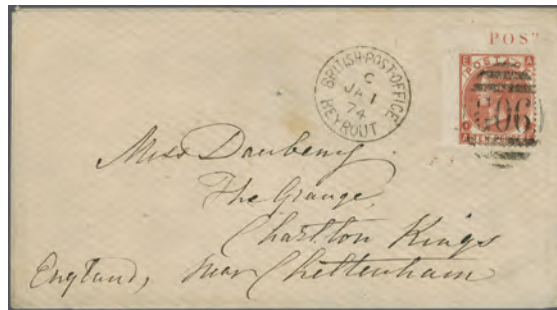 POS
BRITISH·POST·OFFICE
C
JA 1
74
BEYROUT
E A
POSTAGE
G06
TEN PENCE
Miss Daubeny.
The Grange,
Charlton Kings
England, near Cheltenham